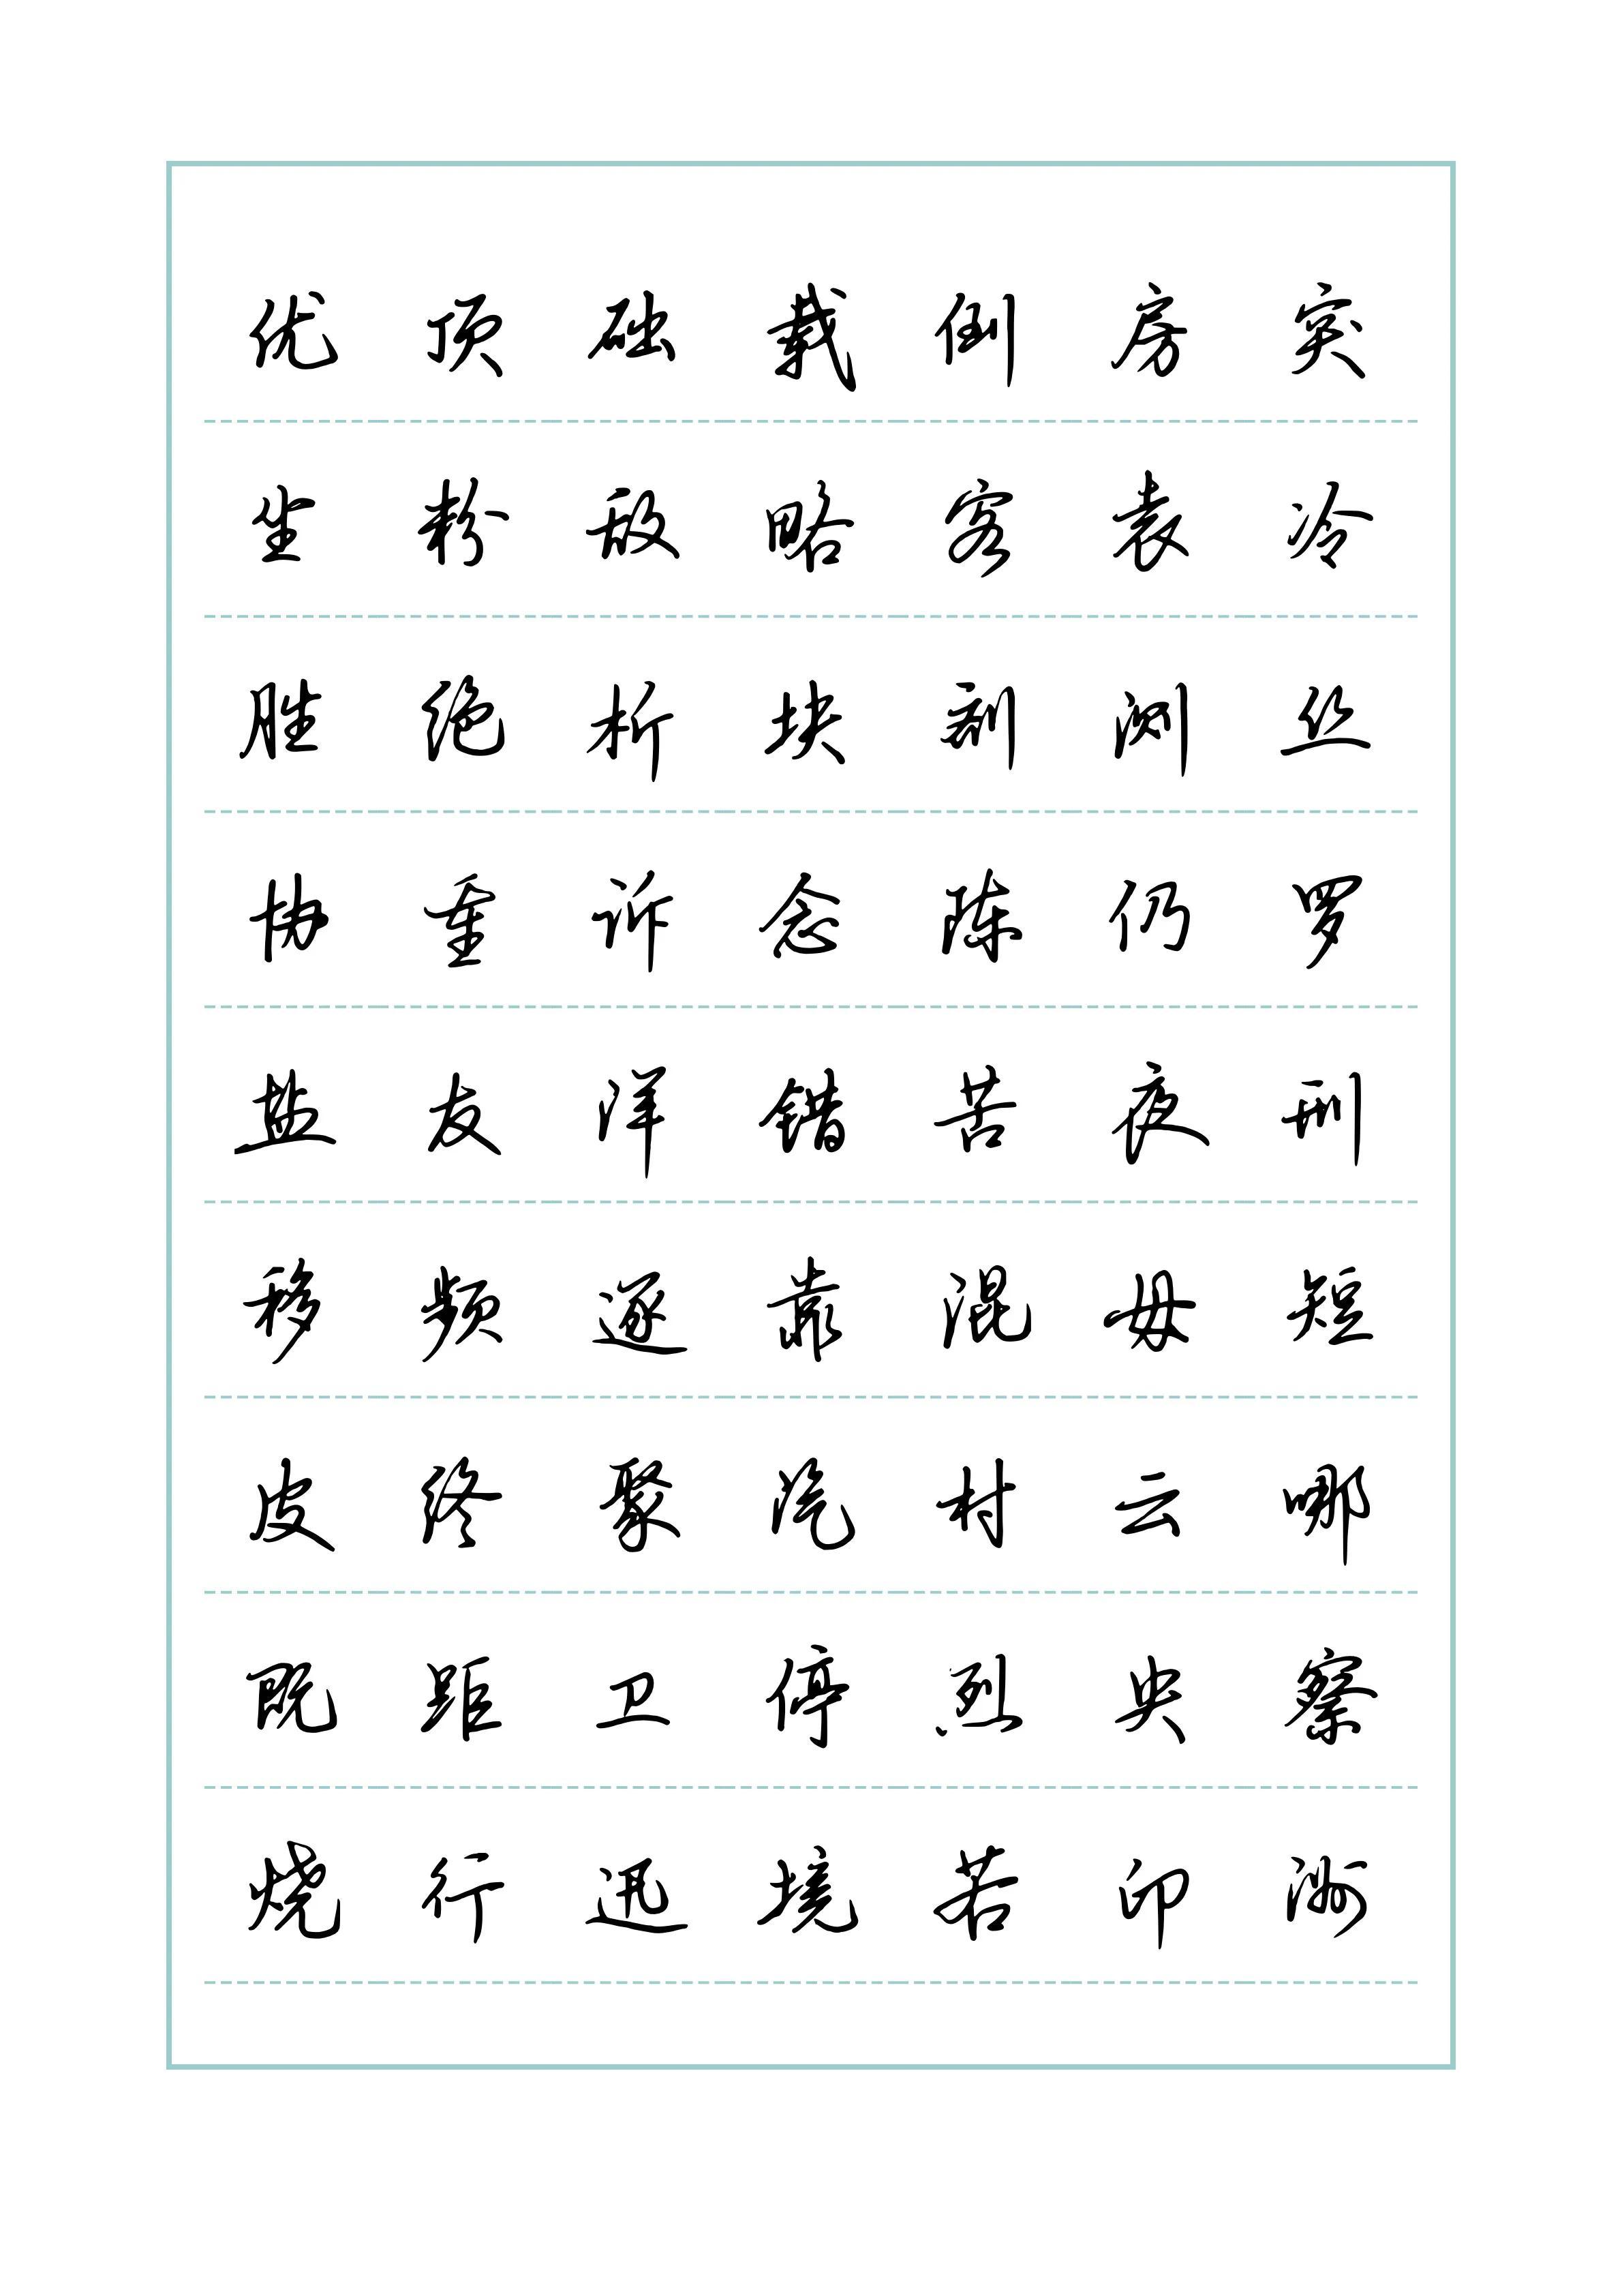 优 顶 础 载 倒 房 突
坐 粉 敌 略 客 袁 冷
胜 绝 析 块 剂 测 丝
协 重 诉 念 陈 仍 罗
盐 友 洋 错 苦 夜 刑
移 频 逐 靠 混 母 短
皮 终 聚 汽 村 云 哪
既 距 卫 停 烈 央 察
烧 行 迅 境 若 印 洲